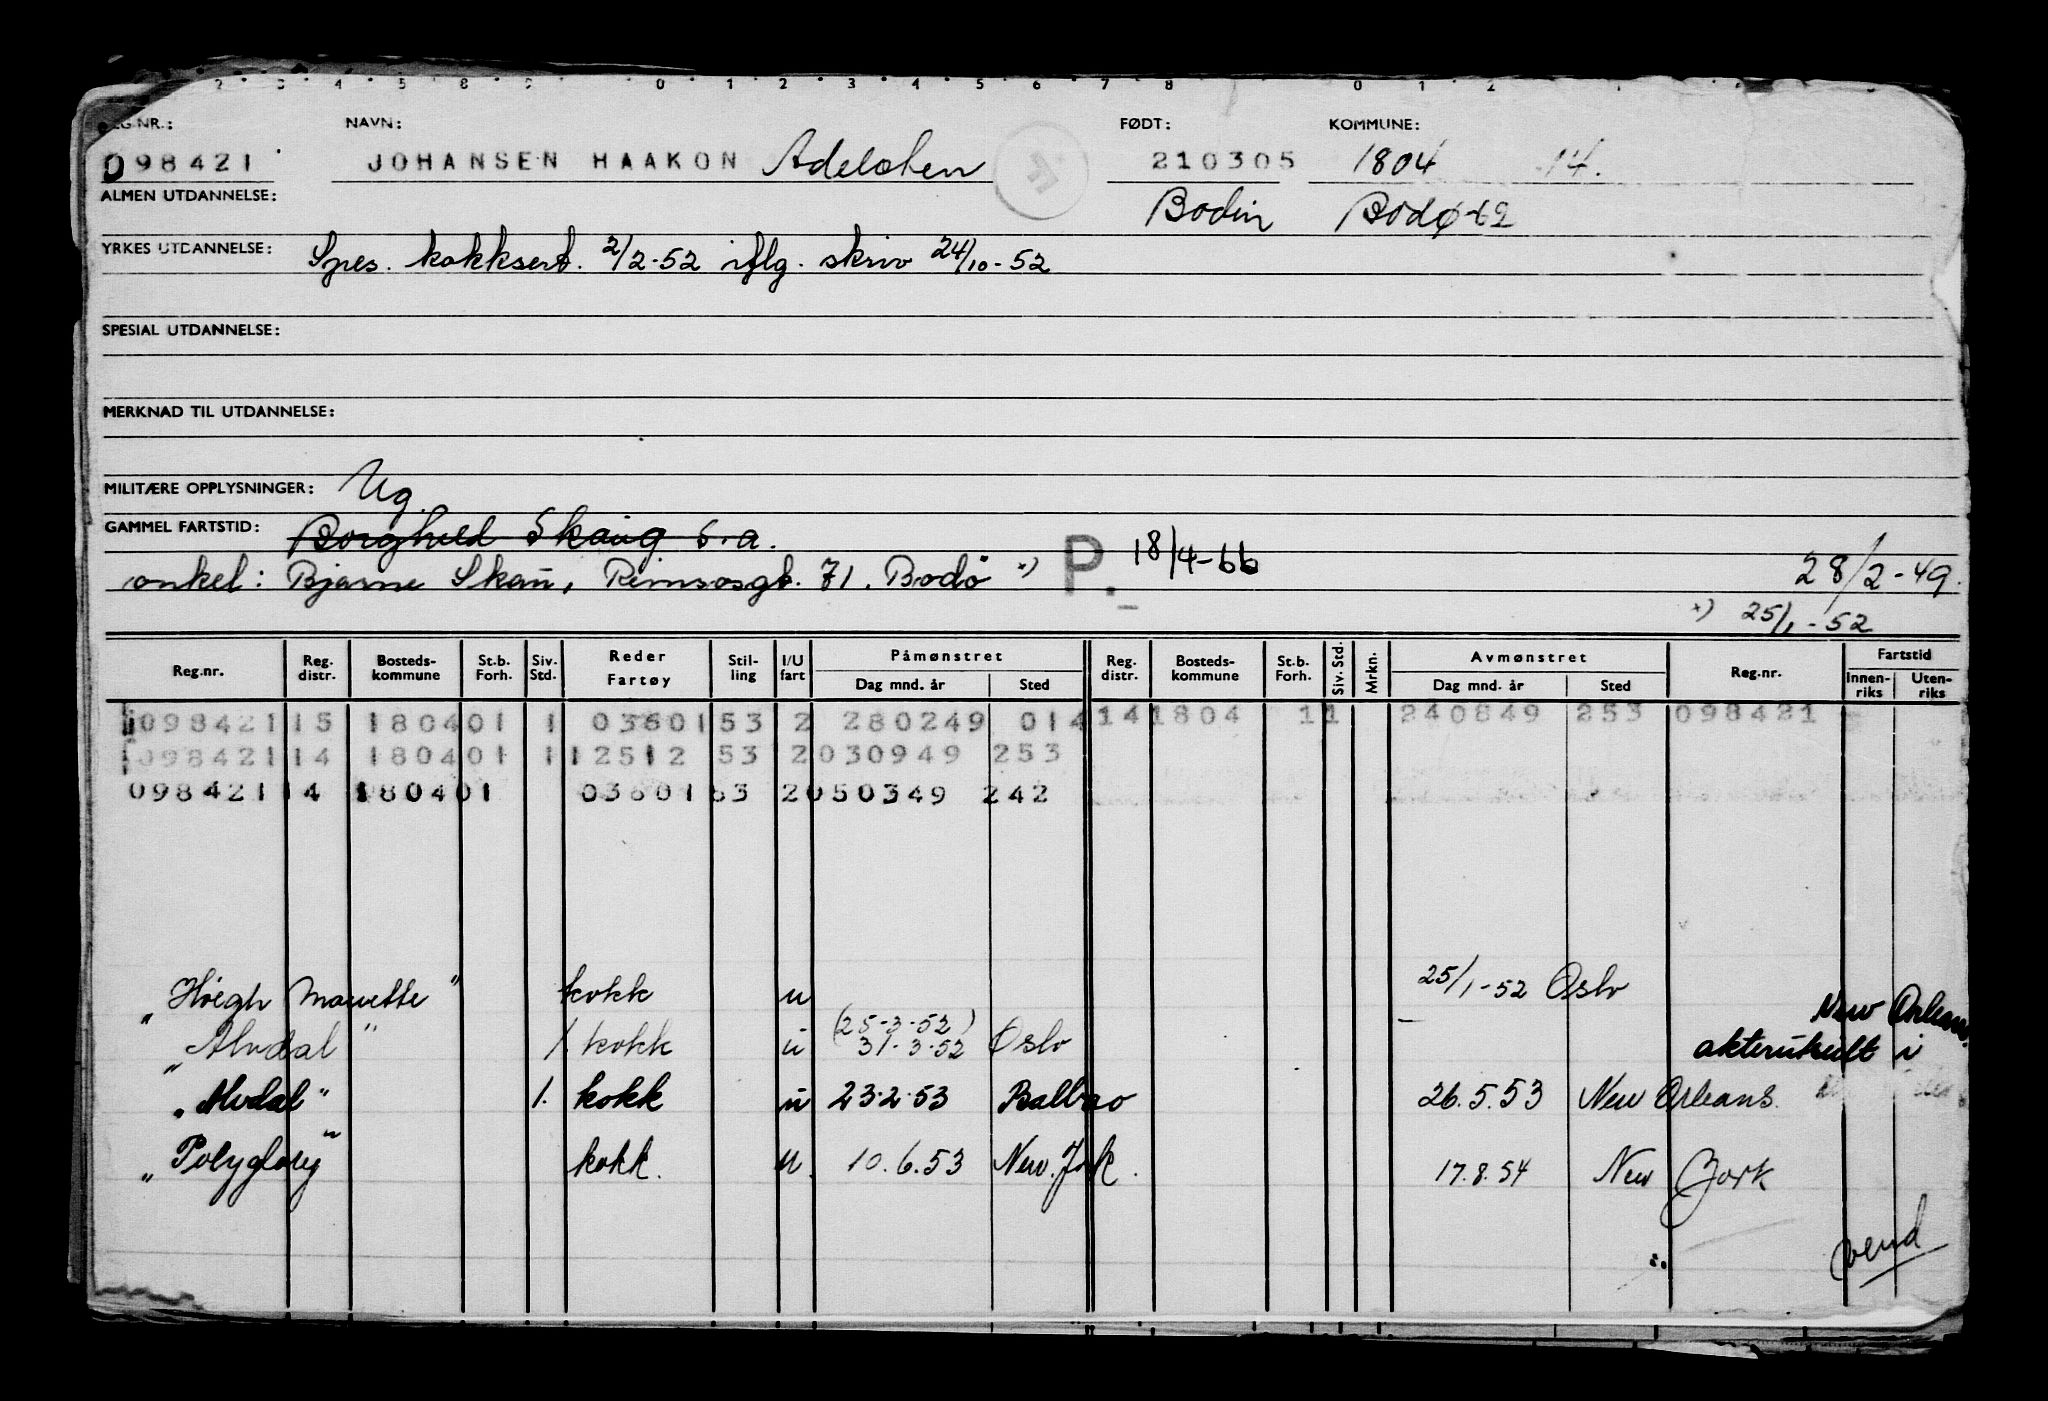 REG.NR.: NAVN: FØDT: KOMMUNE:
098421 JOHANSEN HAAKON 210305 1804 14.
ALMEN UTDANNELSE: Bodin Bodø-62
YRKES UTDANNELSE: Spes. kokksert. 2/2-52 iflg. skriv 24/10-52
SPESIAL UTDANNELSE:
MERKNAD TIL UTDANNELSE:
MILITÆRE OPPLYSNINGER: Ug.
GAMMEL FARTSTID: Borghild Skaug s.a.
onkel: Bjarne Skau, 71. Bodö x) P. 18/4-66 28/2-49.
x) 25/1-52
Reg.nr. Reg. distr. Bosteds-kommune St.b. Forh. Siv. Std. Reder Fartøy Stil-ling I/U fart Påmønstret Dag mnd. år Sted Reg. distr. Bosteds-kommune St.b. Forh. Siv. Std. Mrkn. Avmønstret Dag mnd. år Sted Reg.nr. Fartstid Innen-riks Uten-riks
098421 15 180401 1 0360153 2 280249 014 141804 11 240849 253 098421
098421 14 180401 1 12512 53 2 030949 253
098421 14 180401 0360153 2 050349 242
"Høegh " kokk u 25/1-52 Oslo
"Alvdal" 1. kokk u (25-3-52) 31-3-52 Oslo - akterutseilt i New Orleans.
"Alvdal" 1. kokk u 23.2.53 Balboa 26.5.53 New Orleans.
"Polyglory" kokk. u. 10.6.53 New York. 17.8.54 New York
vend